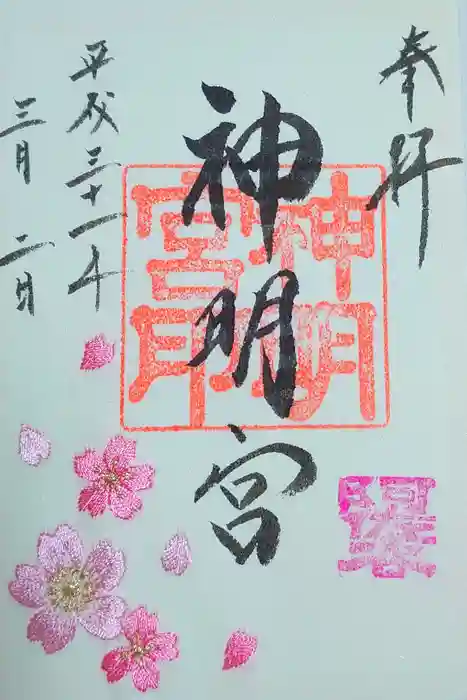 奉拝
神明宮
神明
宮印
平成三十一年
三月二日